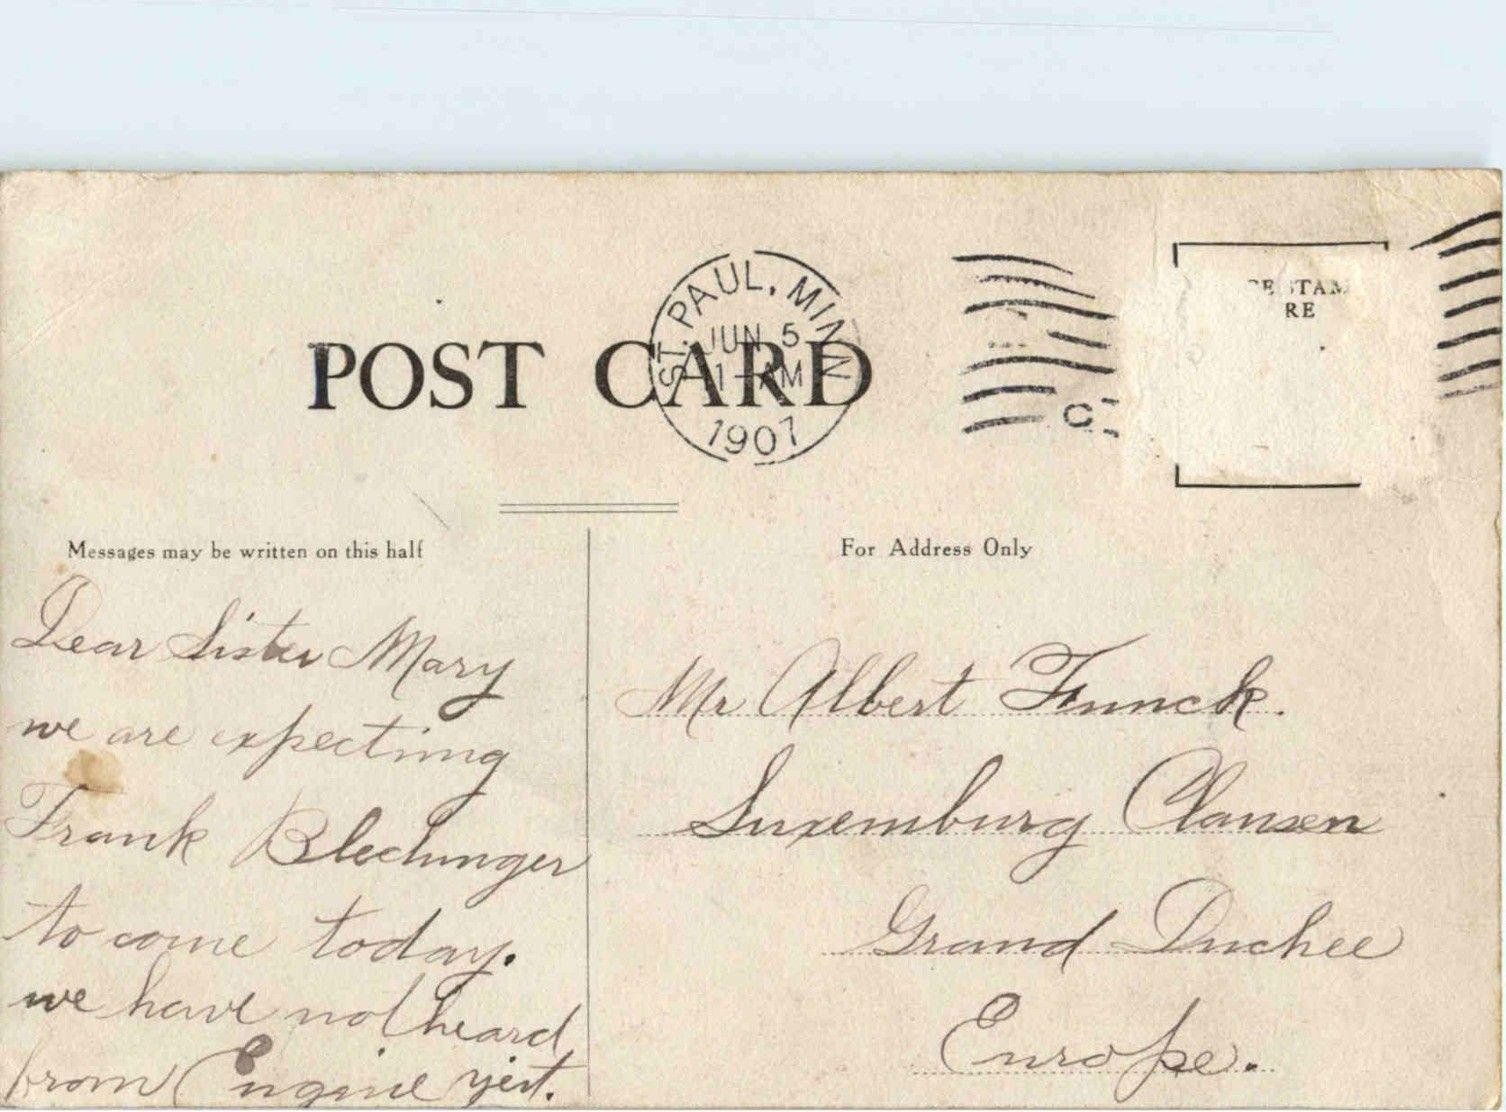 ST. PAUL, MINN.
JUN 5
1-AM
1907
CE STAM
RE
POST CARD
Messages may be written on this half
For Address Only
Dear Sister Mary
we are expecting
Frank Blechinger
to come today.
we have not heard
from Engine yert.
Mr Albert Funck.
Luxemburg Clausen
Grand Duchee
Europe.